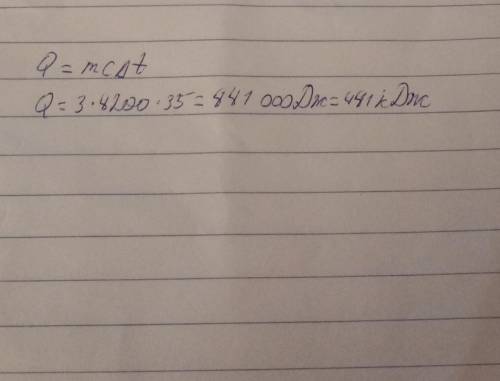 Q = mcΔt
Q = 3·4200·35 = 441 000 Дж = 441 кДж